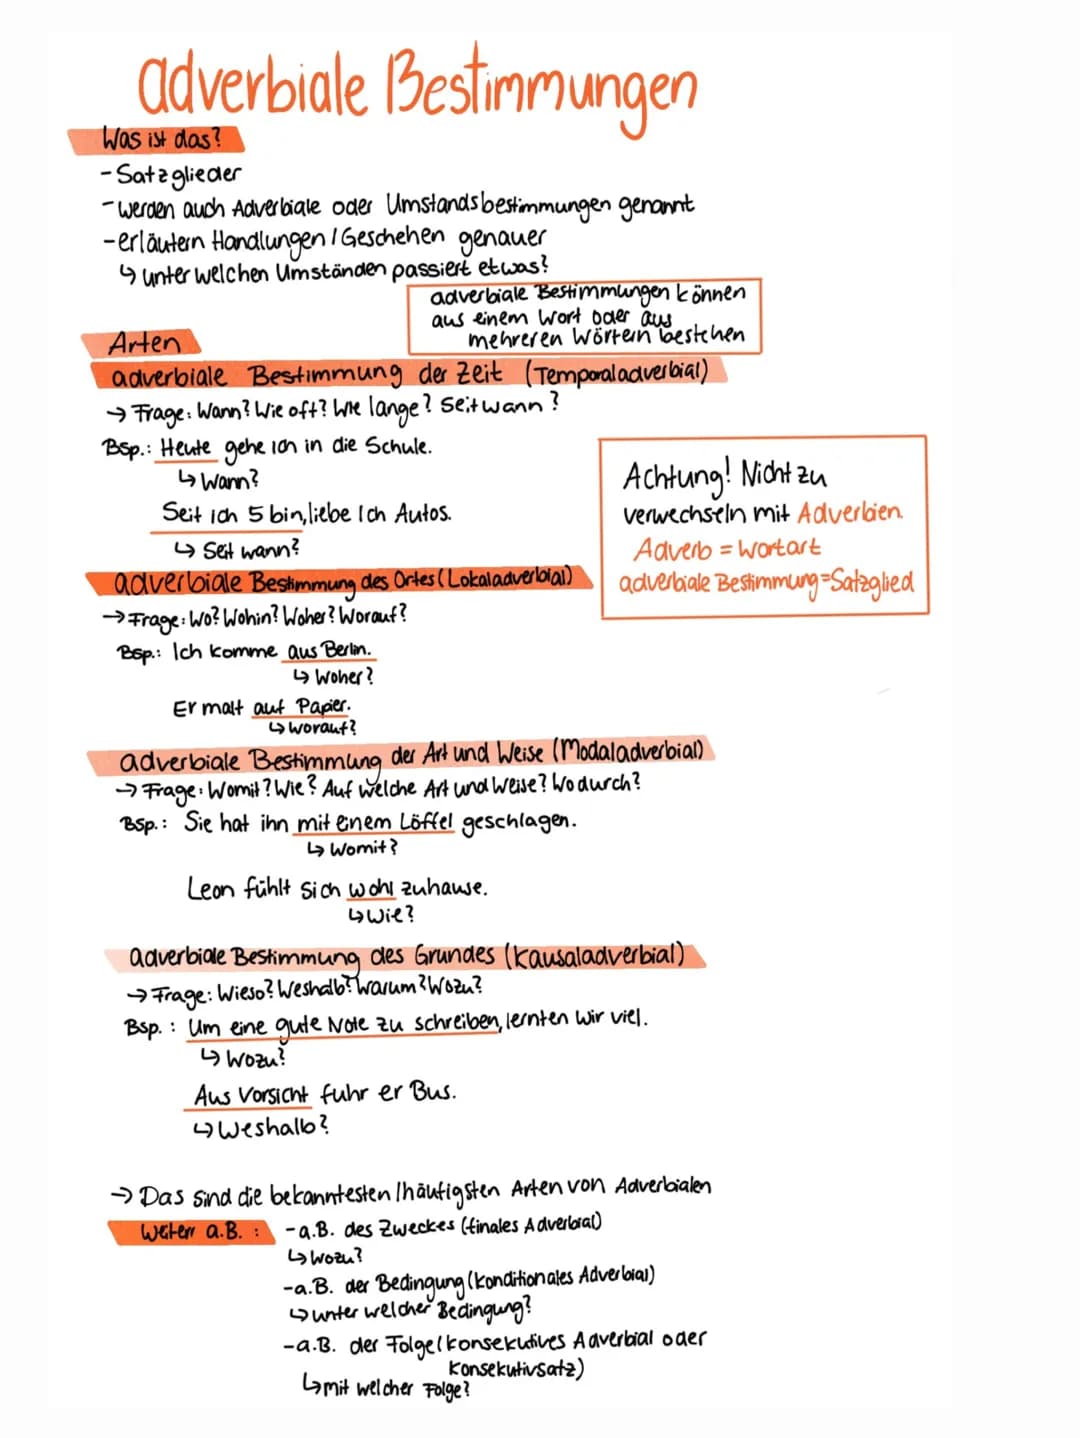 adverbiale Bestimmungen
Was ist das?
- Satzglieder
- werden auch Adverbiale oder Umstandsbestimmungen genannt
- erläutern Handlungen / Geschehen genauer
↳ unter welchen Umständen passiert etwas?
adverbiale Bestimmungen können
aus einem Wort oder aus
mehreren Wörtern bestehen
Arten
adverbiale Bestimmung der Zeit (Temporaladverbial)
→ Frage: Wann? Wie oft? Wie lange? Seit wann?
Bsp.: Heute gehe ich in die Schule.
↳ Wann?
Seit ich 5 bin, liebe Ich Autos.
↳ Seit wann?
Achtung! Nicht zu
verwechseln mit Adverbien.
Adverb = Wortart
adverbiale Bestimmung = Satzglied
adverbiale Bestimmung des Ortes (Lokaladverbial)
→ Frage: Wo? Wohin? Woher? Worauf?
Bsp.: Ich komme aus Berlin.
↳ Woher?
Er malt auf Papier.
↳ Worauf?
adverbiale Bestimmung der Art und Weise (Modaladverbial)
→ Frage: Womit? Wie? Auf welche Art und Weise? Wodurch?
Bsp.: Sie hat ihn mit einem Löffel geschlagen.
↳ Womit?
Leon fühlt sich wohl zuhause.
↳ Wie?
adverbiale Bestimmung des Grundes (Kausaladverbial)
→ Frage: Wieso? Weshalb? Warum? Wozu?
Bsp.: Um eine gute Note zu schreiben, lernten wir viel.
↳ Wozu?
Aus Vorsicht fuhr er Bus.
↳ Weshalb?
→ Das sind die bekanntesten / häufigsten Arten von Adverbialen
a.B.: - a.B. des Zweckes (finales Adverbial)
↳ Wozu?
- a.B. der Bedingung (konditionales Adverbial)
↳ unter welcher Bedingung?
- a.B. der Folge (konsekutives Adverbial oder
Konsekutivsatz)
↳ mit welcher Folge?